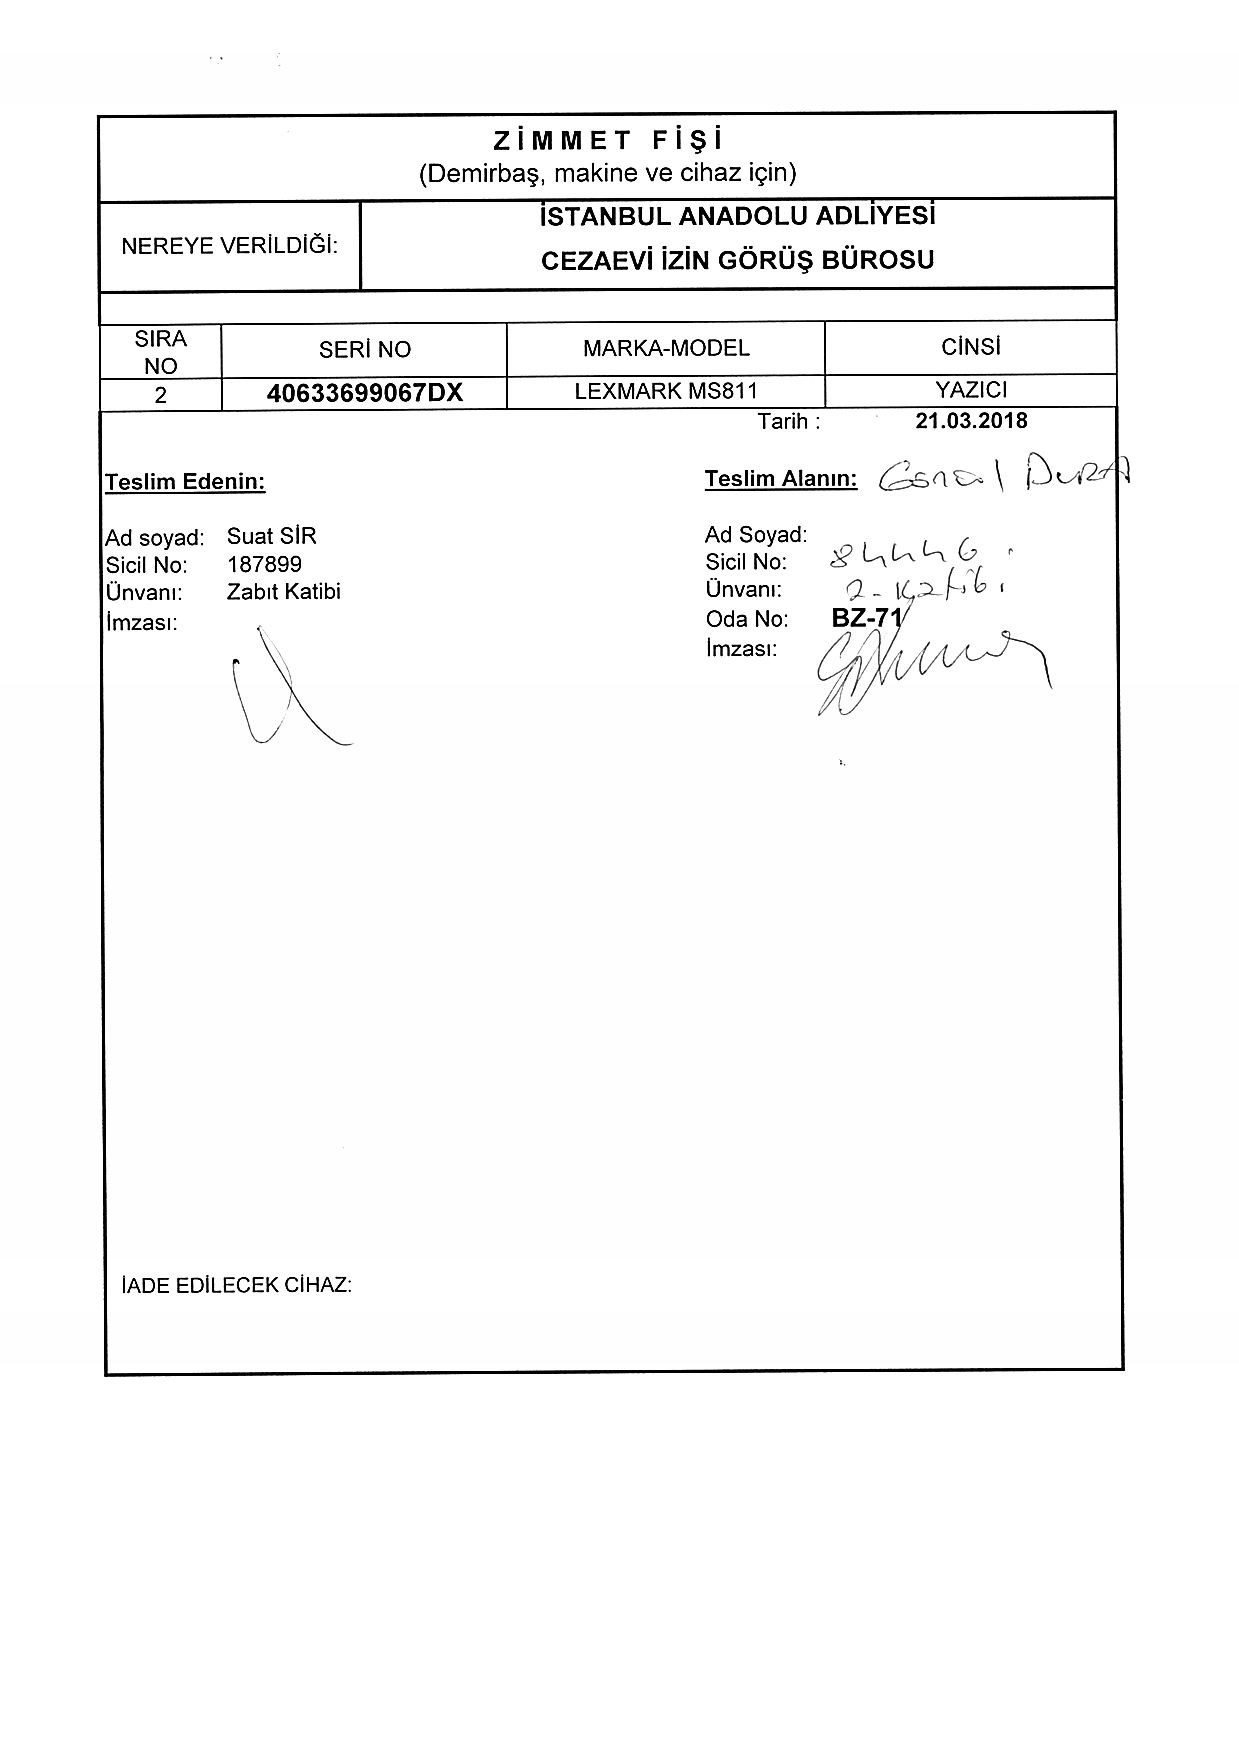 ZİMMET FİŞİ
(Demirbaş, makine ve cihaz için)
NEREYE VERİLDİĞİ:
İSTANBUL ANADOLU ADLİYESİ
CEZAEVİ İZİN GÖRÜŞ BÜROSU
SIRA NO SERİ NO MARKA-MODEL CİNSİ
2 40633699067DX LEXMARK MS811 YAZICI
Tarih : 21.03.2018
Teslim Edenin:
Ad soyad: Suat SİR
Sicil No: 187899
Ünvanı: Zabıt Katibi
İmzası:
Teslim Alanın:
Ad Soyad:
Sicil No: 84446
Ünvanı: Katibi
Oda No: BZ-71
İmzası:
İADE EDİLECEK CİHAZ: